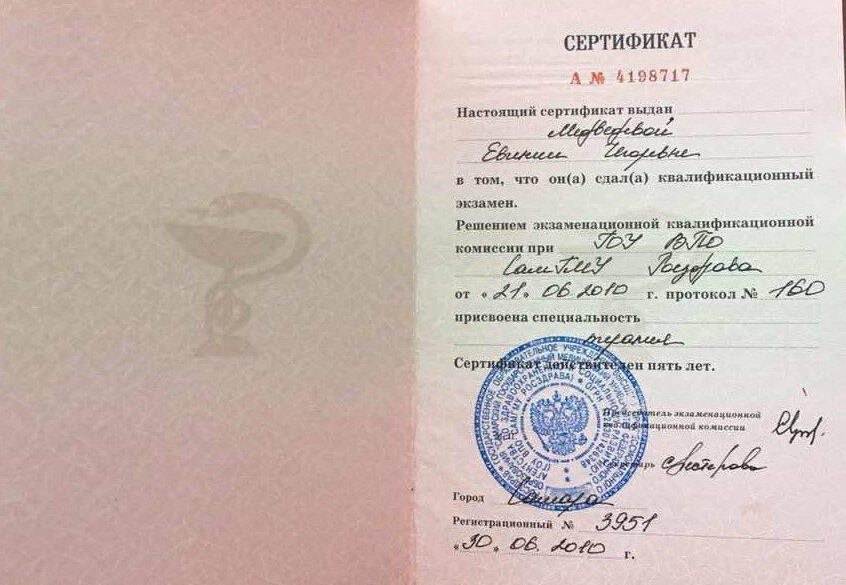 СЕРТИФИКАТ
А № 4198717
Настоящий сертификат выдан
Медведевой
Евгении Игоревне
в том, что он(а) сдал(а) квалификационный
экзамен.
Решением экзаменационной квалификационной
комиссии при ГОУ ВПО
СамГМУ Росздрава
от «21» 06 2010 г. протокол № 160
присвоена специальность
терапия
Сертификат действителен пять лет.
Председатель экзаменационной
квалификационной комиссии
Секретарь
Город Самара
Регистрационный № 3951
«30» 06. 2010 г.